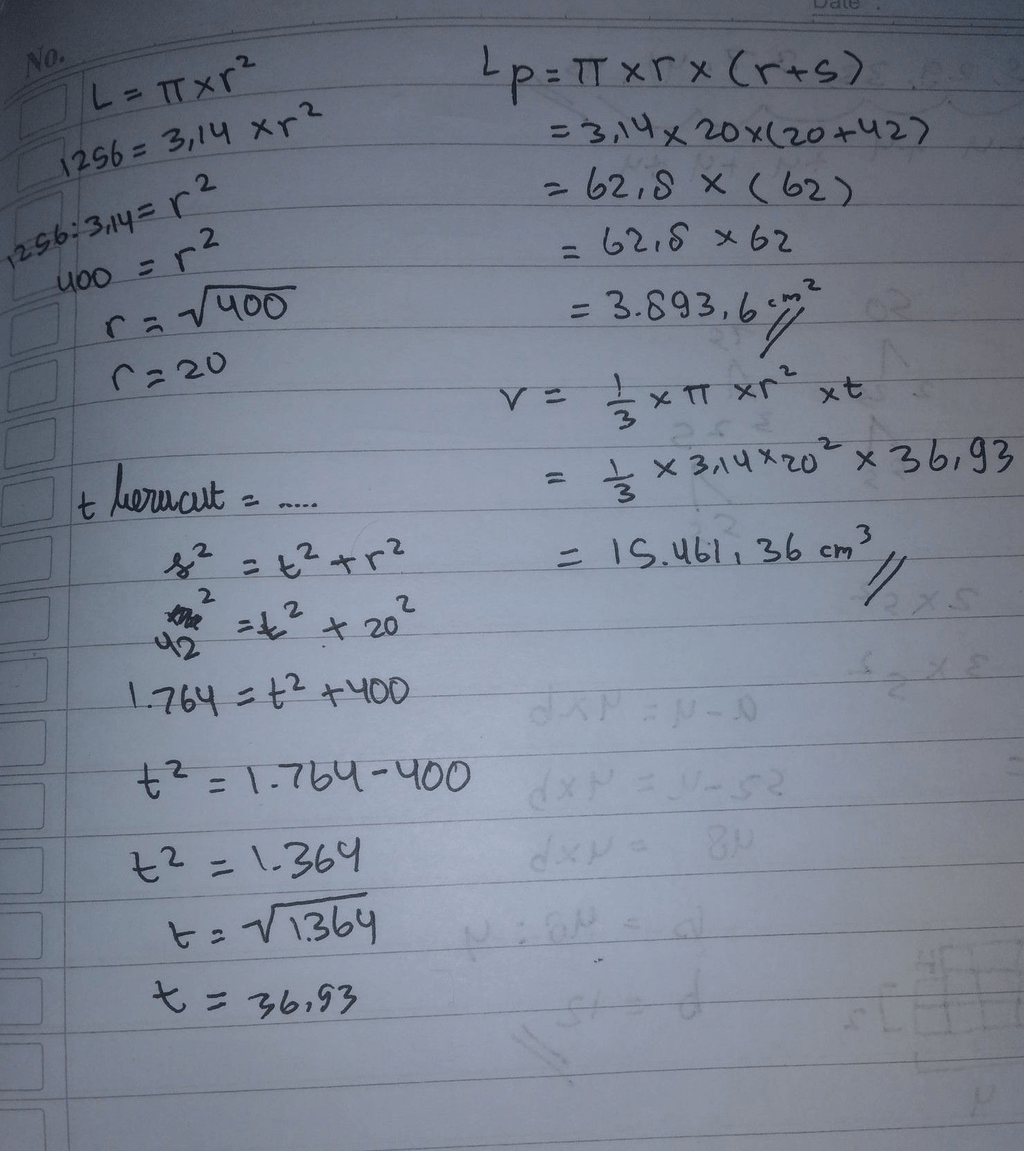 Date :
No.
L = π x r²
1256 = 3,14 x r²
1256 : 3,14 = r²
400 = r²
r = √400
r = 20
t kerucut = .....
s² = t² + r²
42² = t² + 20²
1.764 = t² + 400
t² = 1.764 - 400
t² = 1.364
t = √1.364
t = 36,93
Lp = π x r x (r+s)
= 3,14 x 20 x (20+42)
= 62,8 x (62)
= 62,8 x 62
= 3.893,6 cm²
V = 1/3 x π x r² x t
= 1/3 x 3,14 x 20² x 36,93
= 15.461,36 cm³